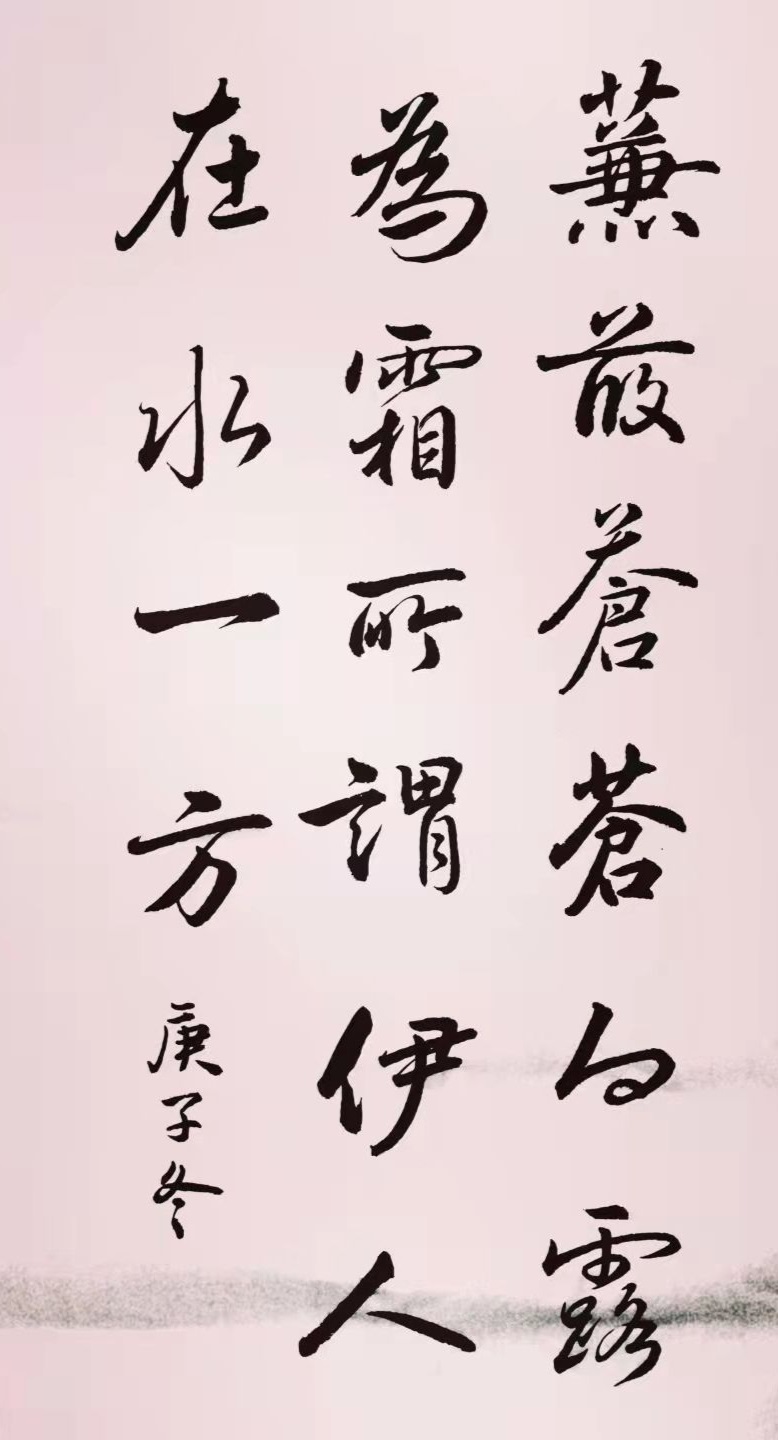 蒹葭蒼蒼白露
為霜所謂伊人
在水一方
庚子冬